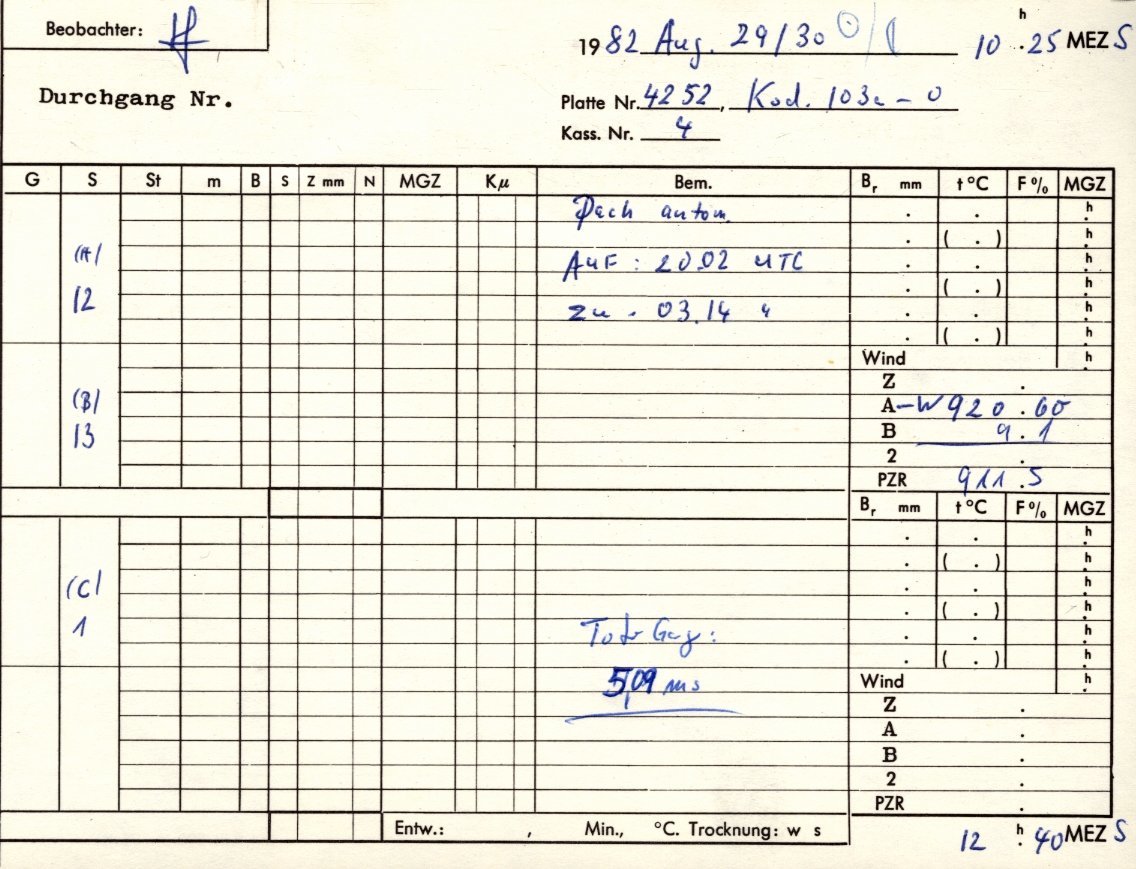 Beobachter:
1982 Aug. 29/30 10 h . 25 MEZ S
Durchgang Nr.
Platte Nr. 4252, Kod. 103a-0
Kass. Nr. 4
G S St m B S Z mm N MGZ Kμ Bem. Br mm t °C F % MGZ
Dach autom. . . h
. ( . ) h
(A) Auf : 20.02 UTC . . h
. ( . ) h
12 zu . 03.14 " . . h
. ( . ) h
Wind h
Z .
(B) A-W 920.60
13 B 9.1
2 .
PZR 911.5
Br mm t °C F % MGZ
. . h
. ( . ) h
(C) . . h
. ( . ) h
1 . . h
. ( . ) h
Wind h
5,09 ms
Z .
A .
B .
2 .
PZR .
Entw.: , Min., °C. Trocknung: w s
12 h . 40 MEZ S